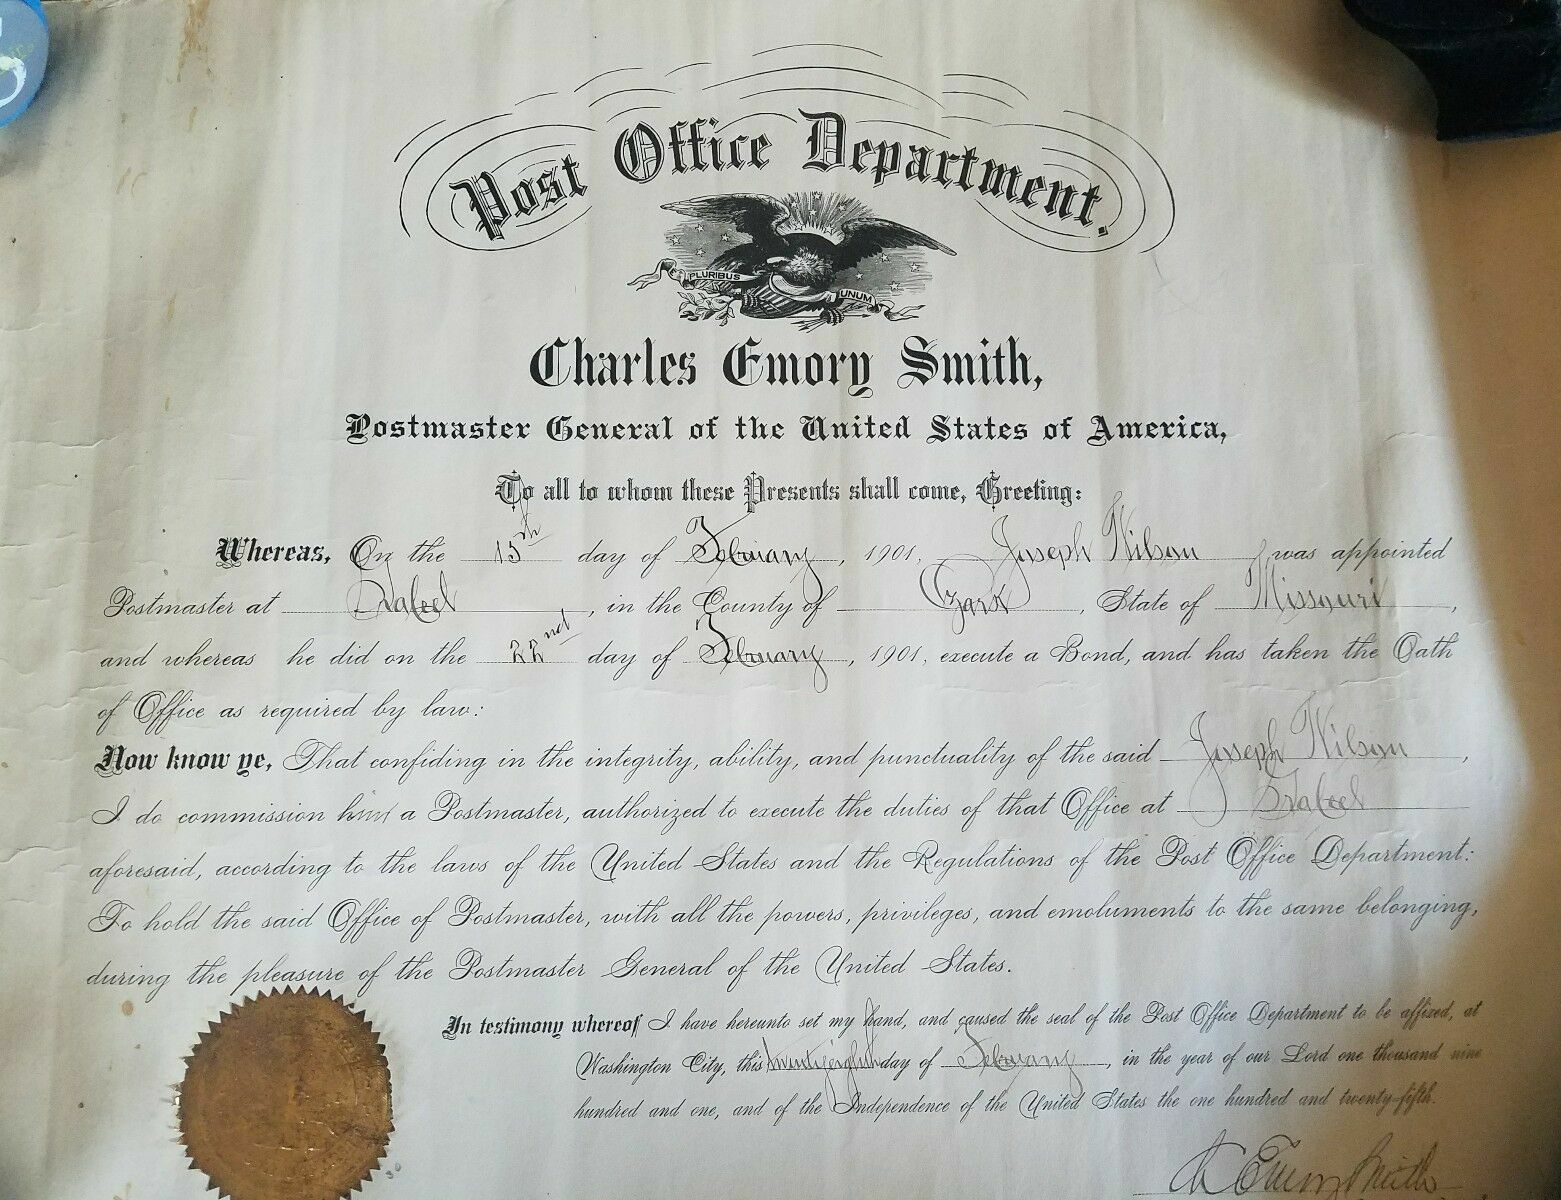 Post Office Department.
PLURIBUS UNUM
Charles Emory Smith,
Postmaster General of the United States of America,
To all to whom these Presents shall come, Greeting:
Whereas, On the 15th day of February, 1901, Joseph Wilson was appointed
Postmaster at, in the County of Ozark, State of Missouri,
and whereas he did on the 22nd day of February, 1901, execute a Bond, and has taken the Oath
of Office as required by law:
Now know ye, That confiding in the integrity, ability, and punctuality of the said Joseph Wilson,
I do commission him a Postmaster, authorized to execute the duties of that Office at
aforesaid, according to the laws of the United States and the Regulations of the Post Office Department:
To hold the said Office of Postmaster, with all the powers, privileges, and emoluments to the same belonging,
during the pleasure of the Postmaster General of the United States.
In testimony whereof I have hereunto set my hand, and caused the seal of the Post Office Department to be affixed, at
Washington City, this twentyeighth day of February, in the year of our Lord one thousand nine
hundred and one, and of the Independence of the United States the one hundred and twenty-fifth.
Ch Emory Smith